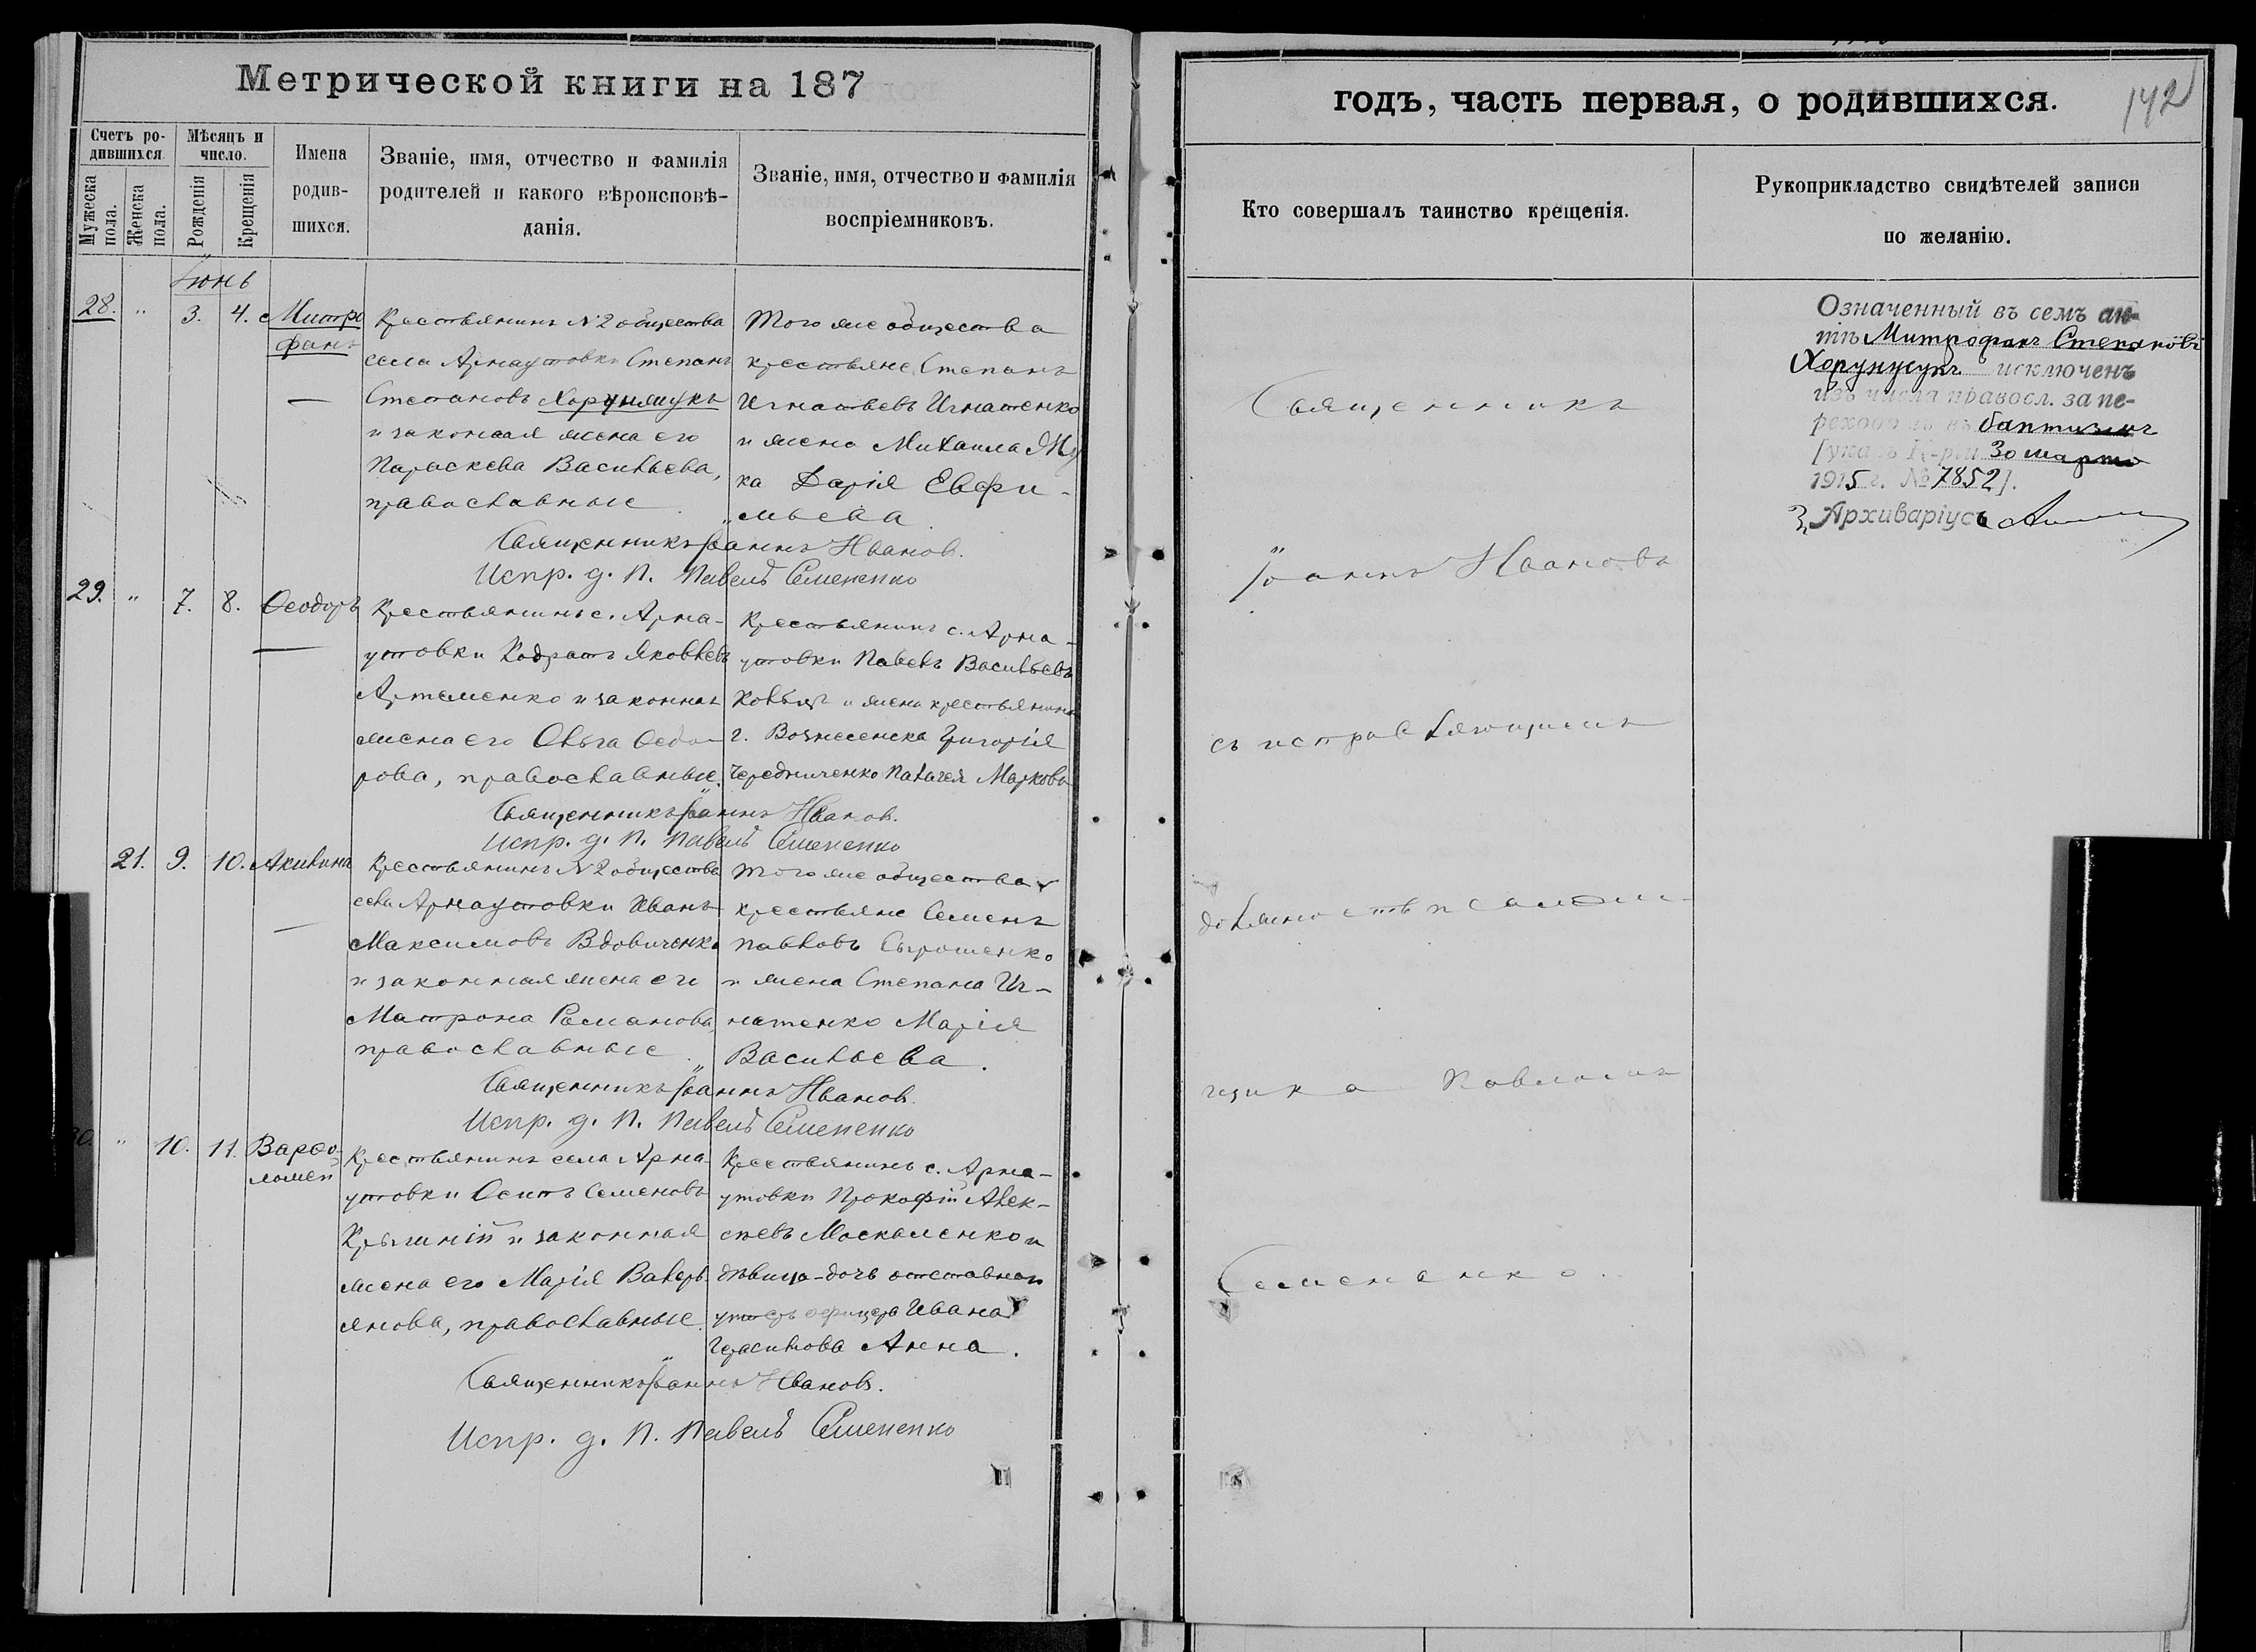 Метрической книги на 187
Счетъ ро-
дившихся.
Мѣсяцъ и
число.
Мужеска
пола.
Женска
пола.
Рожденія
Крещенія
Имена
родив-
шихся.
Званіе, имя, отчество и фамилія
родителей и какого вѣроисповѣ-
данія.
Званіе, имя, отчество и фамилія
воспріемниковъ.
Іюнь
28. " 3. 4. Митро
фанъ
Крестьянинъ №2 общества
села Арнаутовки Степанъ
Степановъ Хорунжукъ
и законная жена его
Параскева Васильева,
православные
Того же общества
крестьяне Степанъ
Игнатьевъ Игнатенко
и жена Михаила Жу
ка Дарія Евфи-
мьева.
Священникъ Іоаннъ Ивановъ.
Испр. д. П. Павелъ Семененко
29. " 7. 8. Ѳеодоръ
Крестьянинъ с. Арна-
утовки Кодратъ Яковлевъ
Артеменко и законная
жена его Ольга Ѳедо-
рова, православные.
Крестьянинъ с. Арна-
утовки Павелъ Васильевъ
и жена крестьянина
г. Вознесенска Григорія
Чередниченко Палагея Маркова
Священникъ Іоаннъ Ивановъ.
Испр. д. П. Павелъ Семененко
21. 9. 10. Акилина
Крестьянинъ №2 общества
села Арнаутовки Иванъ
Максимовъ Вдовиченко
и законная жена его
Матрона Романова,
православные.
Того же общества
крестьяне Семенъ
Павловъ Сырошенко
и жена Степана Иг-
натенко Марія
Васильева.
Священникъ Іоаннъ Ивановъ.
Испр. д. П. Павелъ Семененко
30. " 10. 11. Варѳо-
ломей
Крестьянинъ села Арна-
утовки Осипъ Семеновъ
и законная
жена его Марія Валерь-
янова, православные.
Крестьянинъ с. Арна-
утовки Прокофій Алек-
сѣевъ Москаленко и
дѣвица-дочь отставного
унтеръ офицера Ивана
Герасимова Анна.
Священникъ Іоаннъ Ивановъ.
Испр. д. П. Павелъ Семененко
годъ, часть первая, о родившихся.
142
Кто совершалъ таинство крещенія.
Рукоприкладство свидѣтелей записи
по желанію.
Священникъ
Іоаннъ Ивановъ
съ исправляющимъ
должность псаломщ-
щика Павломъ
Семененко.
Означенный въ семъ ак-
тѣ Митрофанъ Степановъ
Хорунжукъ исключенъ
изъ числа правосл. за пе-
реходомъ въ баптизмъ
[указъ К-ріи 30 марта
1915 г. № 7852].
Архиваріусъ